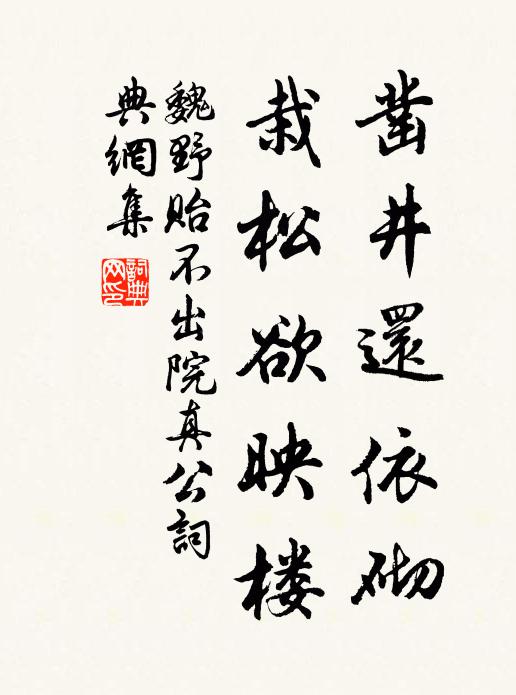 凿井還依砌
栽松欲映楼
魏野貽不出院真公詞
典網集
詞典
网印